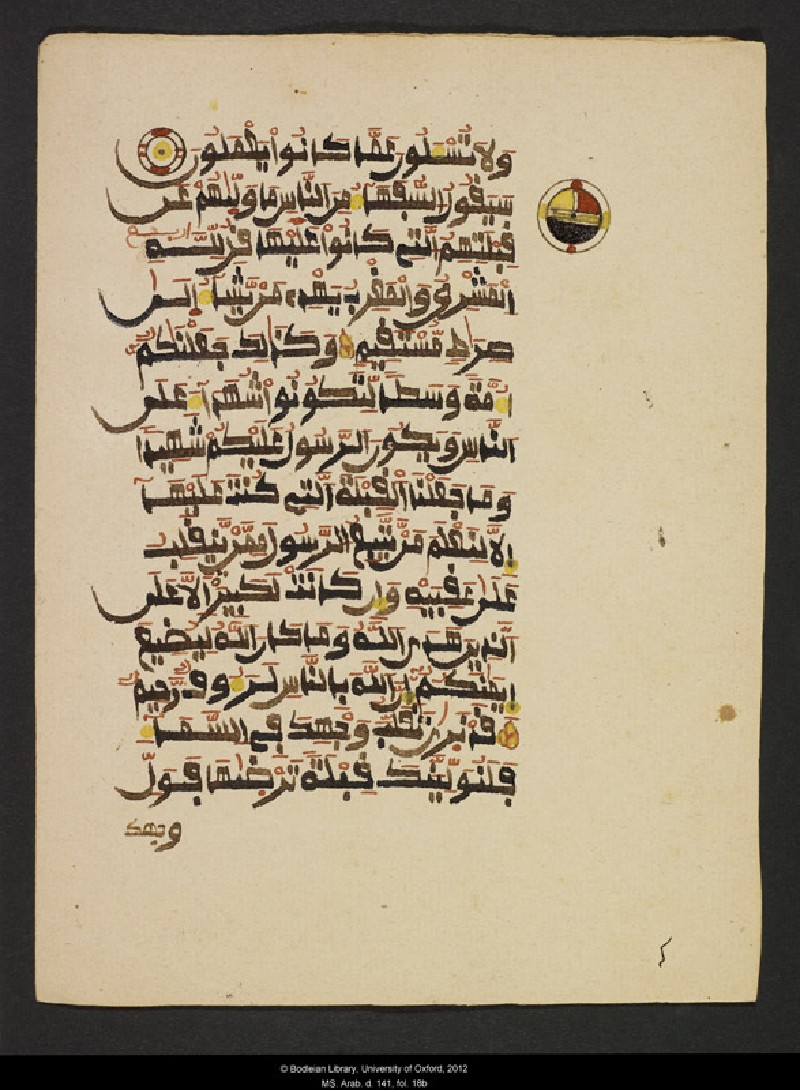 ولا تُسْـَٔلون عمّا كانوا يعملون
سيقول السّفهاء من النّاس ما ولّيٰهم عن
قبلتهم الّتے كانوا عليها قل لّلّه
المشرق والمغرب يهدے من يّشاء الى
صرٰط مّستقيم وكذٰلك جعلنٰكم
امّة وسطا لّتكونوا شهداء على
النّاس ويكون الرّسول عليكم شهيدا
وما جعلنا القبلة الّتے كنت عليها
الّا لنعلم من يّتّبع الرّسول ممّن يّنقلب
على عقبيه وان كانت لكبيرة الّا على
الّذين هدى اللّه وما كان اللّه ليضيع
ايمٰنكم ان اللّه بالنّاس لرءوف رّحيم
قد نرى تقلّب وجهك فے السّماء
فلنولّينّك قبلة ترضٰيها فولّ
وجهك
© Bodleian Library, University of Oxford, 2012
MS. Arab. d. 141, fol. 16b